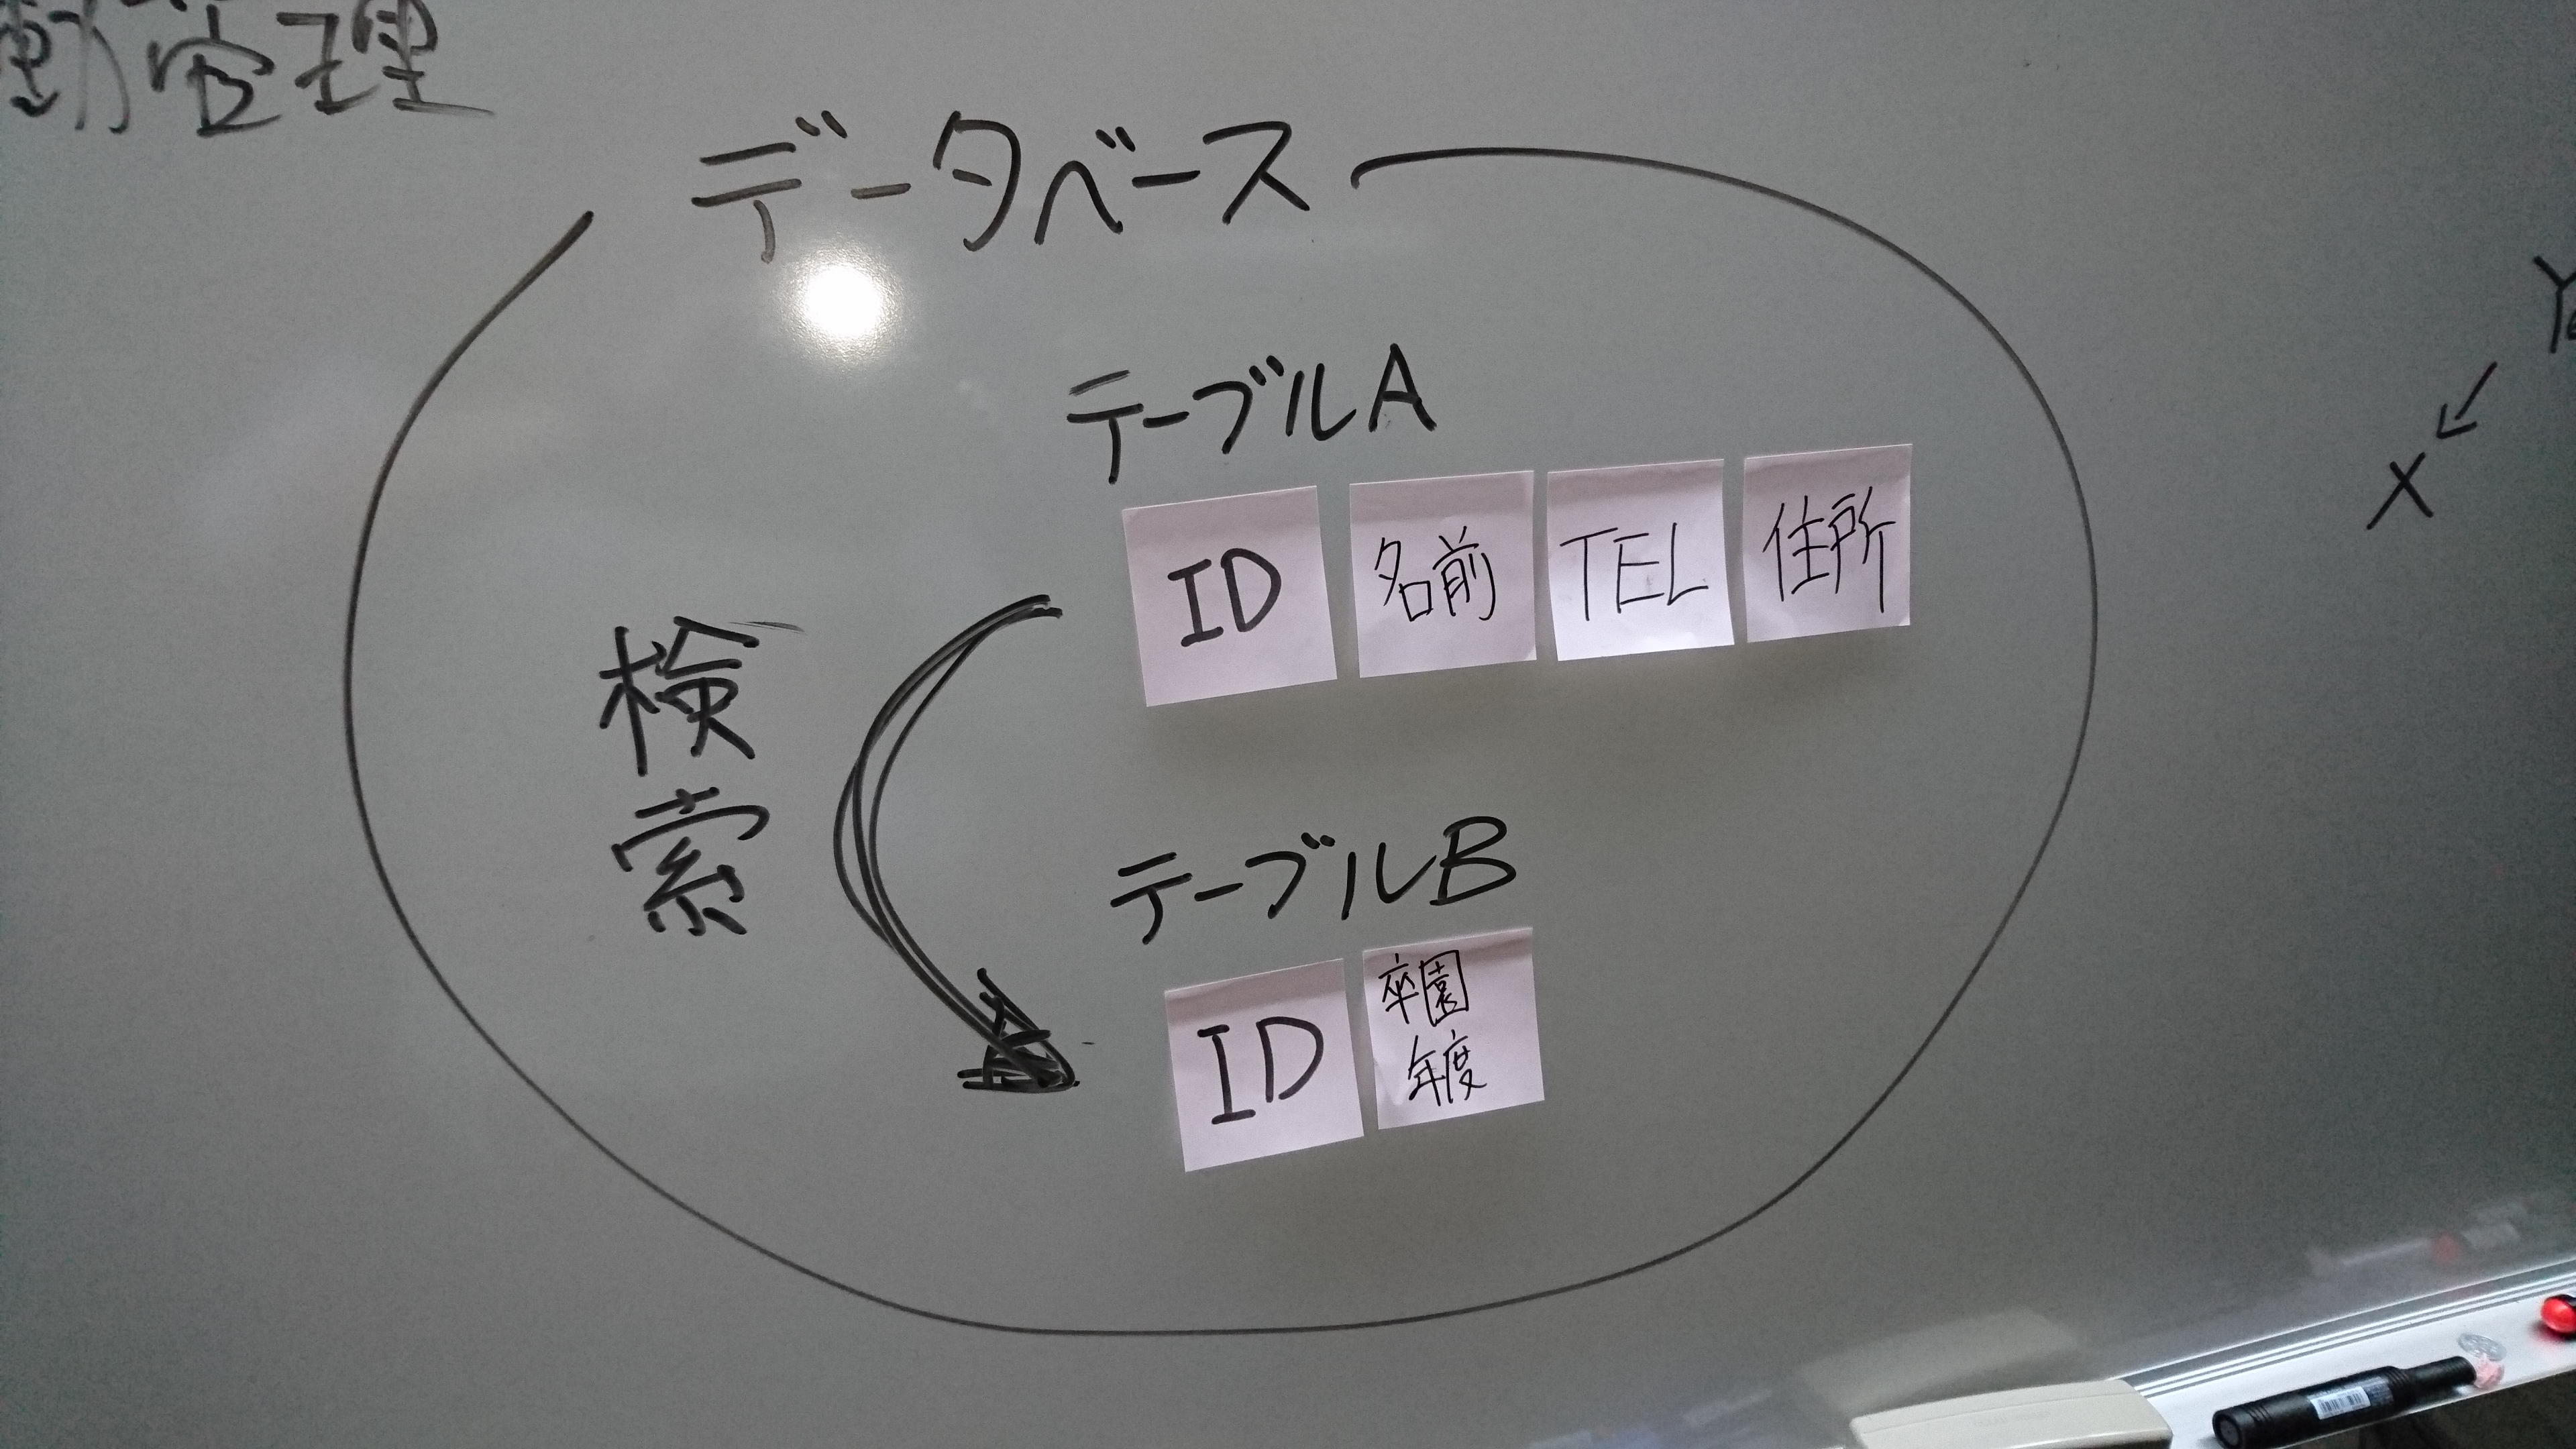 動管理
データベース
テーブルA
ID
名前
TEL
住所
検索
テーブルB
ID
卒園
年度
X